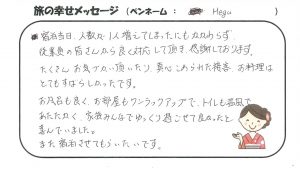 旅の幸せメッセージ（ペンネーム： Hegu ）
宿泊当日、人数が1人増えてしまったにもかかわらず
従業員の皆さんから良く対応して頂き、感謝しております。
たくさんお気づかい頂いたり、真心こめられた接客、お料理は
とてもすばらしかったです。
お風呂も良く、お部屋もワンランクアップで、トイレも広風で
あたたかく、家族みんなでゆっくり過ごせて良かったと
喜んでいました。
また宿泊させてもらいたいです。